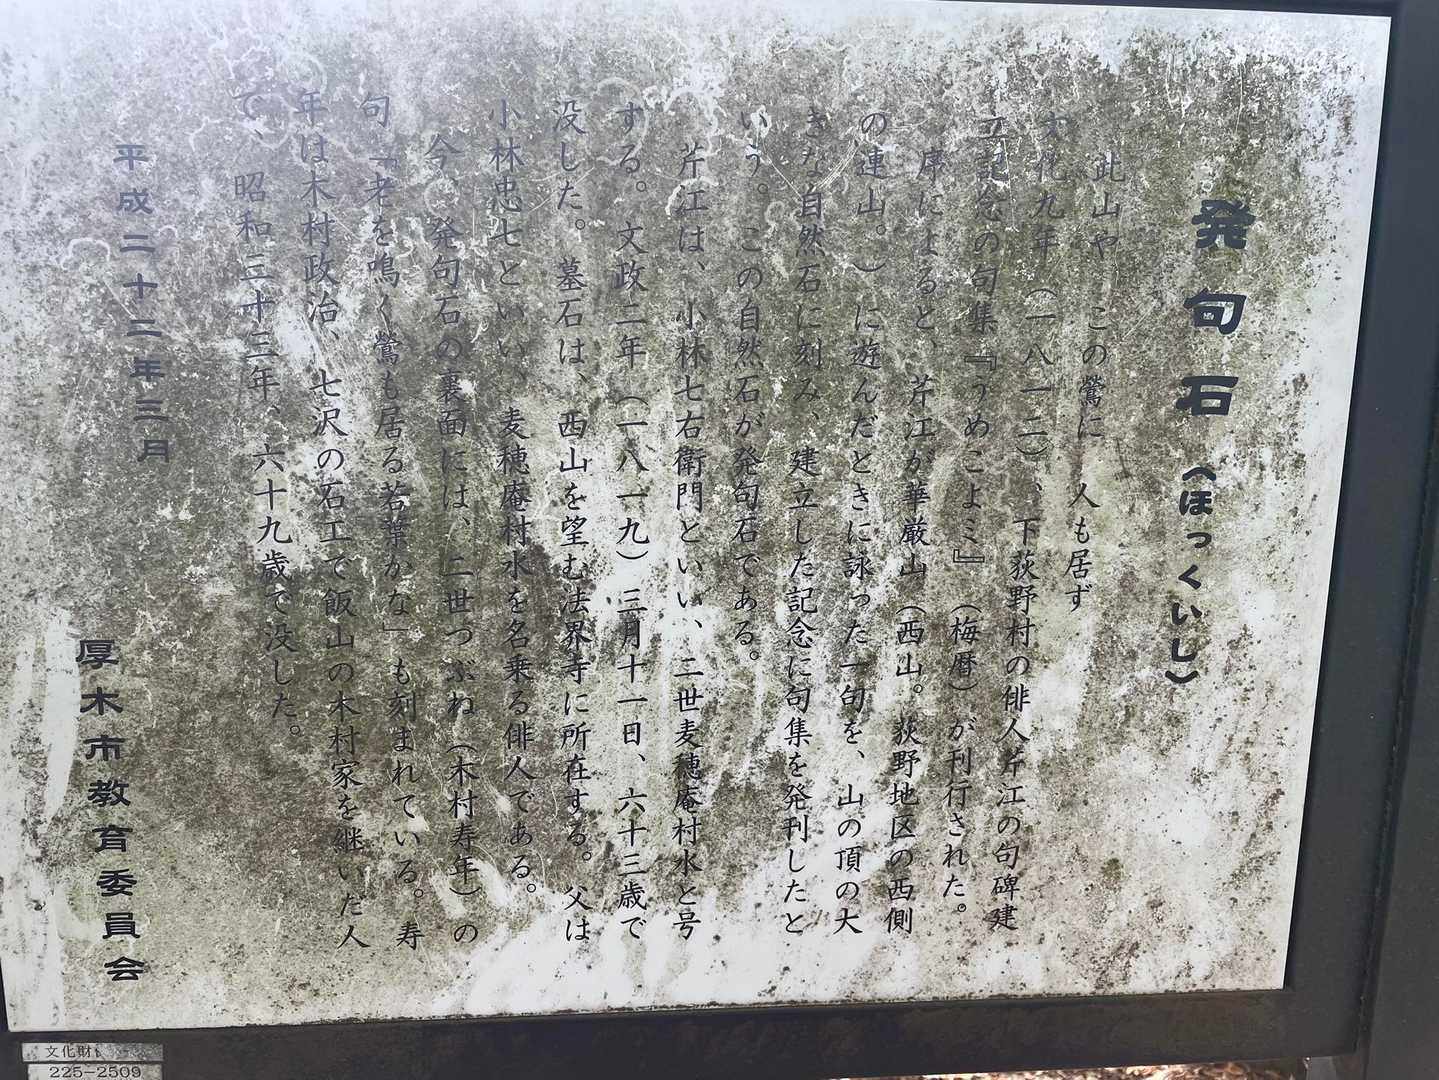 発句石（ほっくいし）
此山や　この鶯に　人も居ず
文化九年（一八一二）、下荻野村の俳人芹江の句碑建
立記念の句集『うめこよミ』（梅暦）が刊行された。
序によると、芹江が華厳山（西山。荻野地区の西側
の連山。）に遊んだときに詠った一句を、山の頂の大
きな自然石に刻み、建立した記念に句集を発刊したと
いう。この自然石が発句石である。
芹江は、小林七右衛門といい、二世麦穂庵村水と号
する。文政二年（一八一九）三月十一日、六十三歳で
没した。墓石は、西山を望む法界寺に所在する。父は
小林忠七といい、麦穂庵村水を名乗る俳人である。
今、発句石の裏面には、二世つぶね（木村寿年）の
句「老を鳴く鶯も居る若葉かな」も刻まれている。寿
年は木村政治、七沢の石工で飯山の木村家を継いだ人
で、昭和三十三年、六十九歳で没した。
平成二十二年三月
厚木市教育委員会
文化財
225-2509